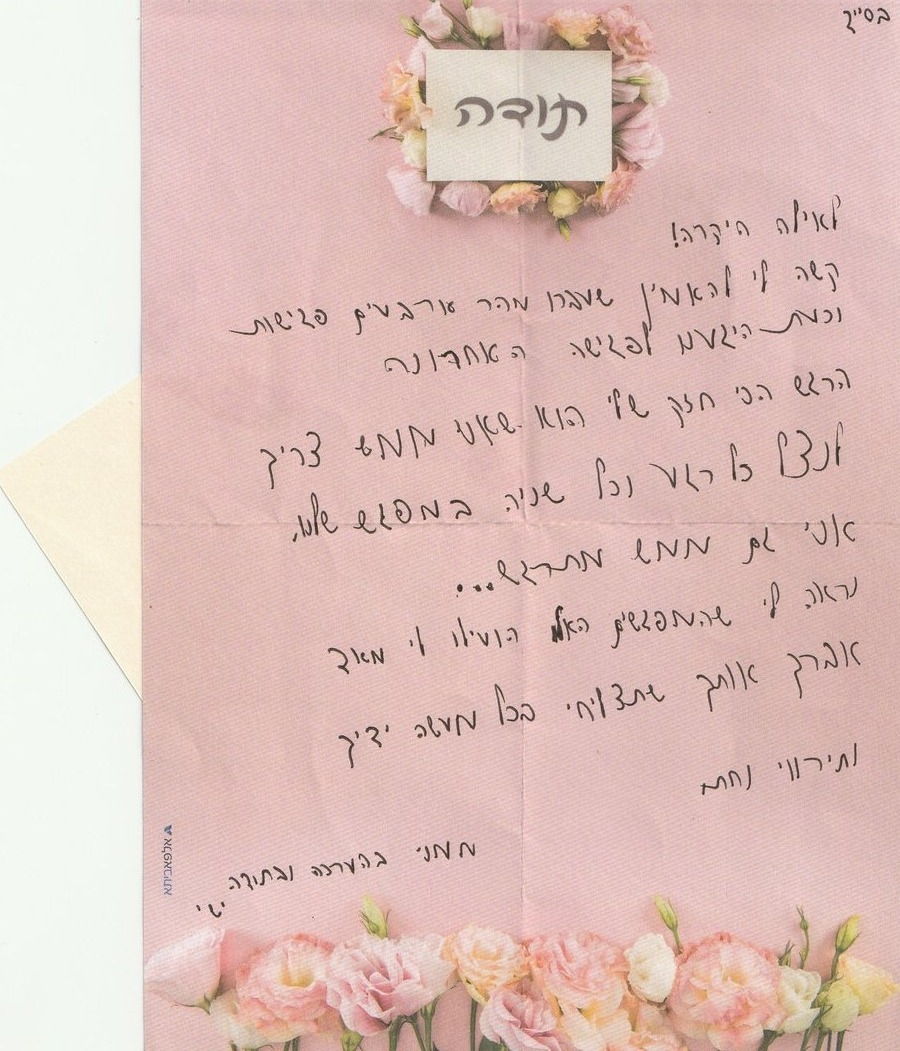 בס״ד
תודה
לאילה היקרה!
קשה לי להאמין שעברו מהר ארבעים פגישות
וכמעט היגענו לפגישה האחרונה
הרגש הכי חזק שלי הוא שאני ממש צריך
לנצל כל רגע וכל שניה במפגש שלנו,
אני גם ממש מתרגש...
נראה לי שהמפגשים האלו הועילו לי מאוד
אברך אותך שתצליחי בכל מעשה ידיך
ותירווי נחת
ממני בהערכה ובתודה
ישי
אלפאביתא